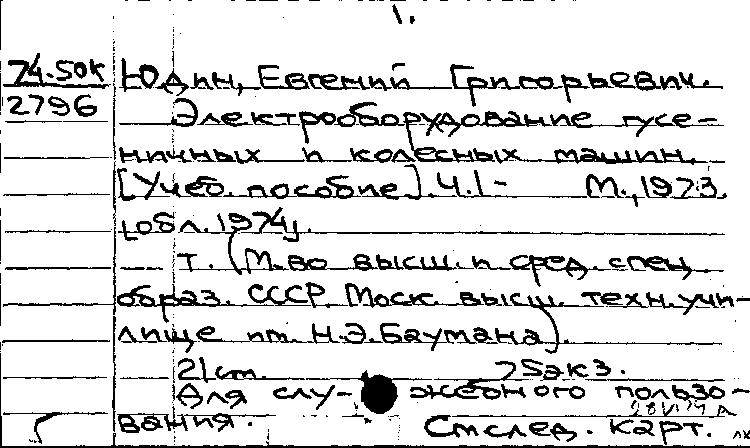 1.
74.50к Юдин, Евгений Григорьевич.
2796
Электрооборудование гусе-
ничных и колесных машин.
[Учеб. пособие]. Ч.1- М., 1973.
[обл. 1974].
— т. (М-во высш. и сред. спец.
образ. СССР. Моск. высш. техн. учи-
лище им. Н.Э.Баумана).
21 см. 75 экз.
Для слу- жебного пользо-
вания. См след. карт.